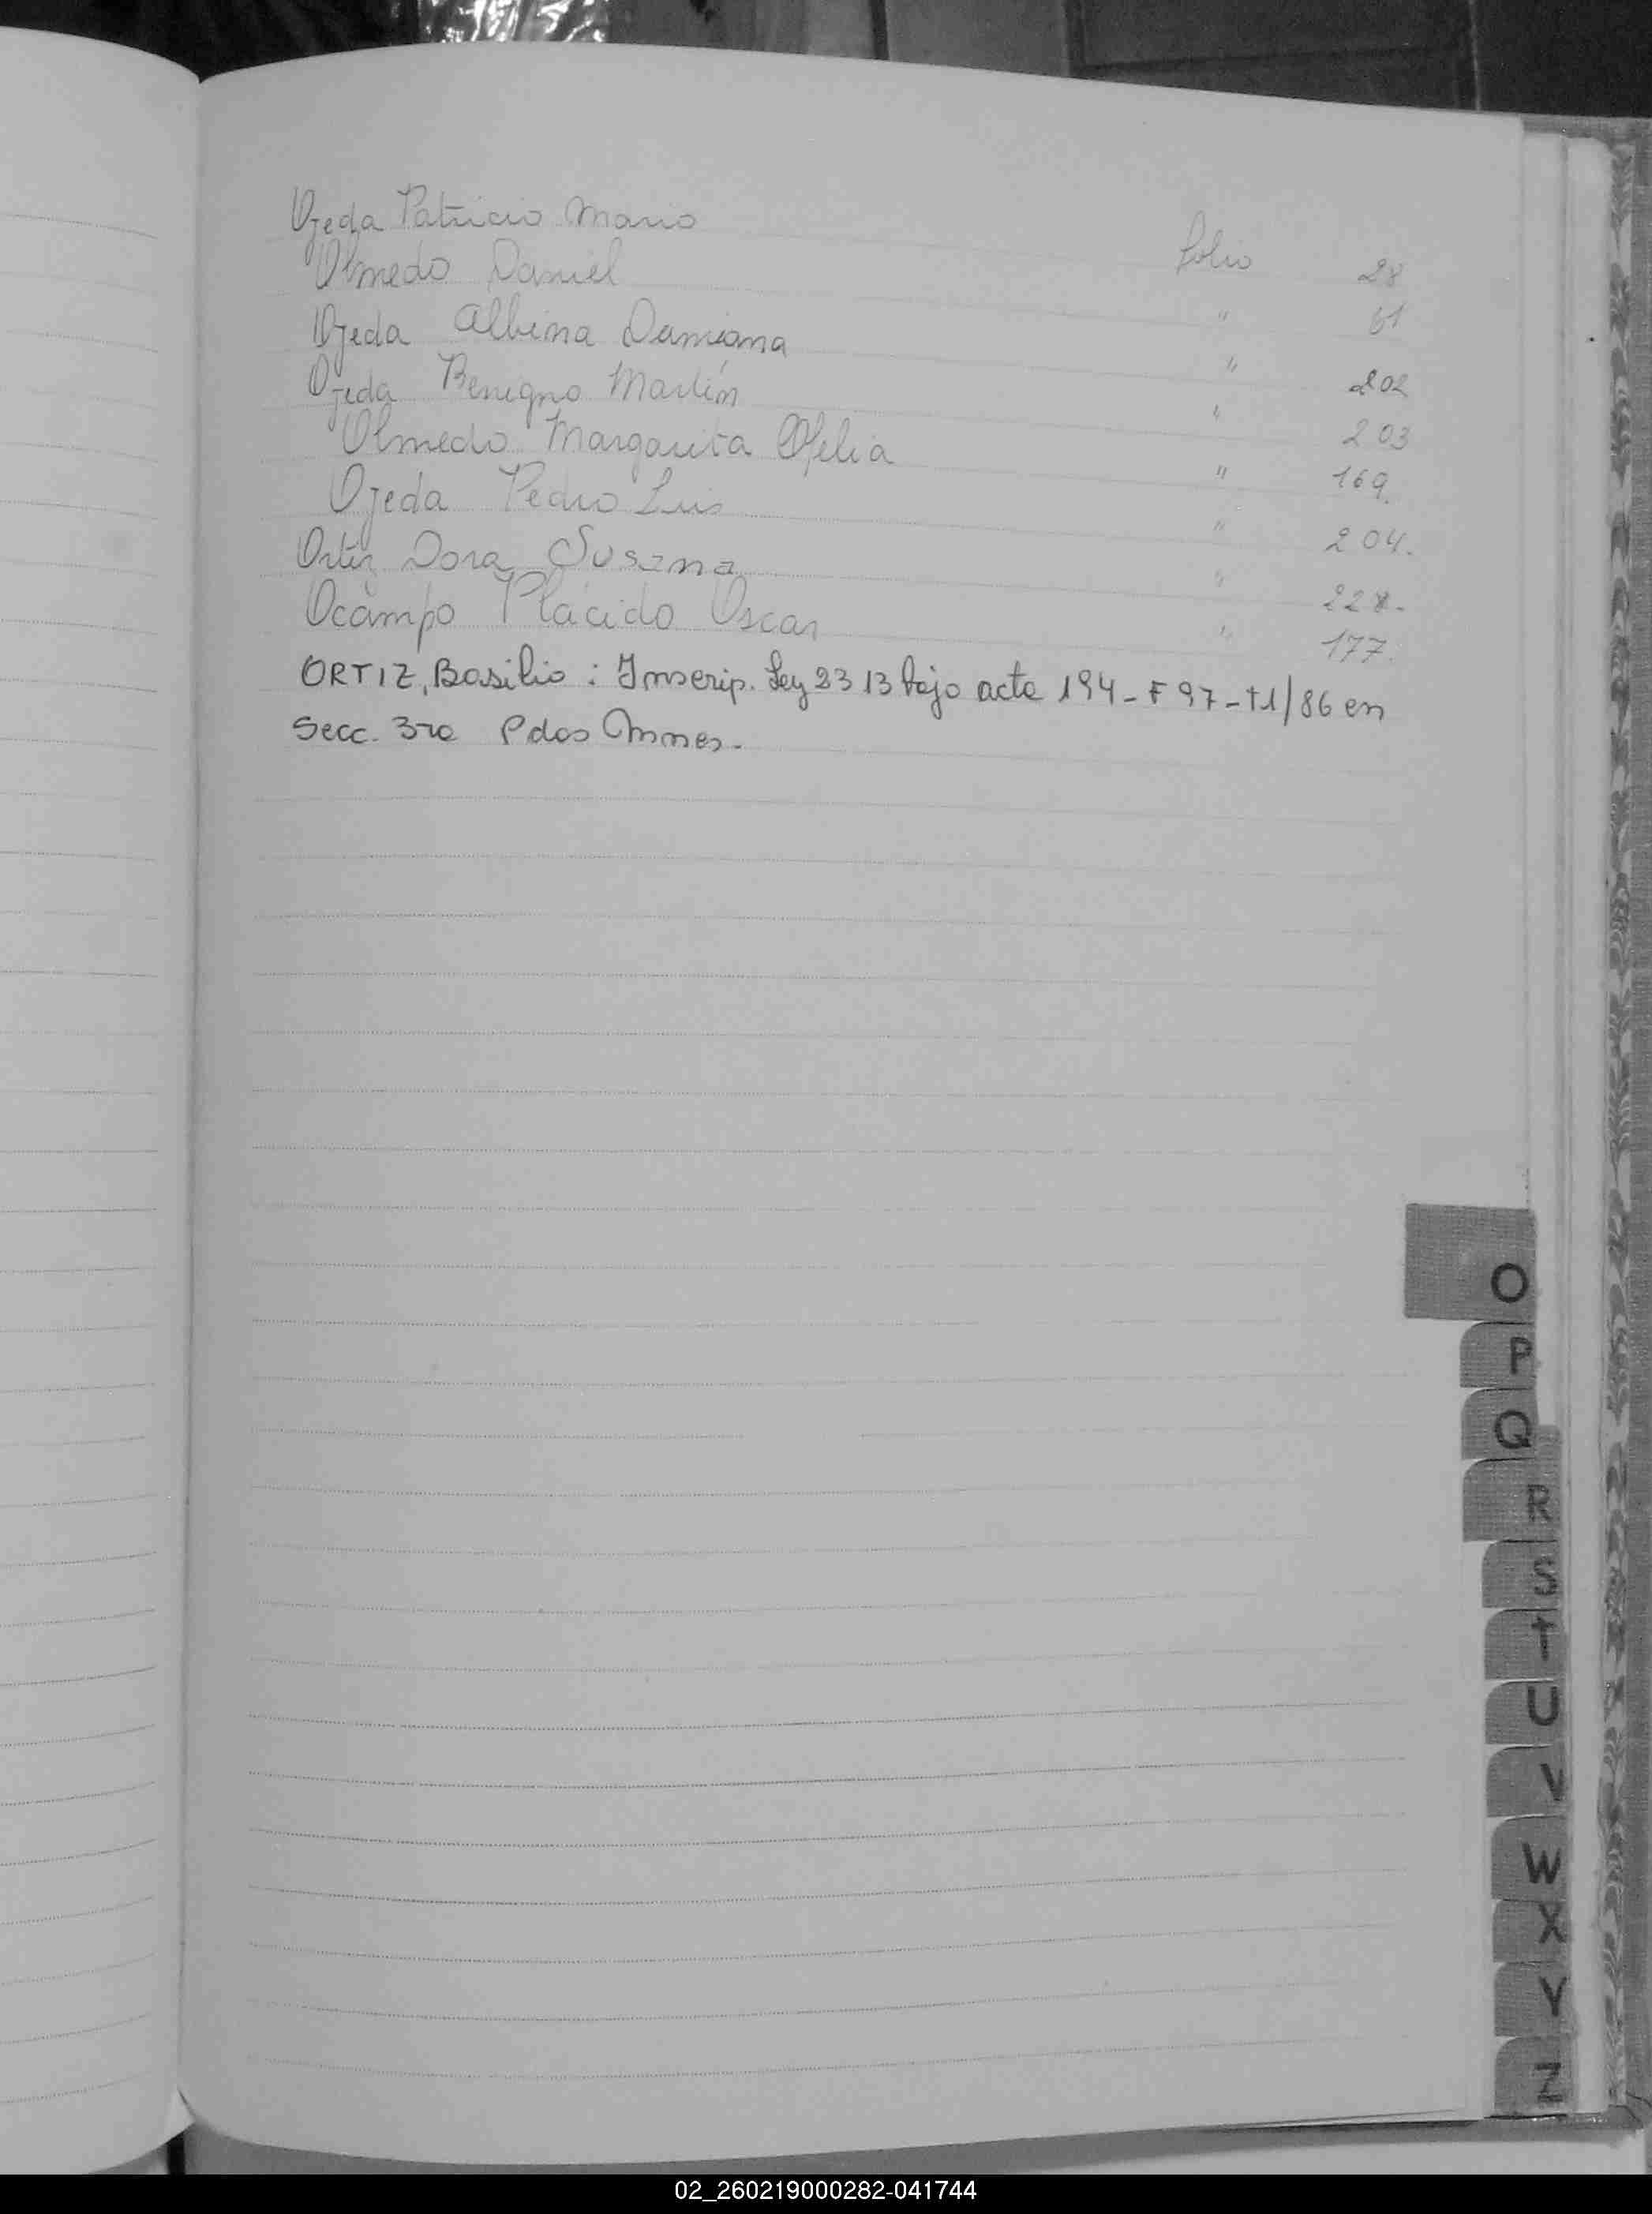 Ojeda Patricio Mario Folio 28
Olmedo Daniel " 61
Ojeda Albina Damiana " 202
Ojeda Benigno Martín " 203
Olmedo Margarita Ofelia " 169.
Ojeda Pedro Luis " 204.
Ortiz Dora Susana " 228.
Ocampo Plácido Oscar " 177.
ORTIZ, Basilio : Inscrip. Ley 2313 bajo acta 194 - F 97 - T1/86 en
Secc. 3ra Pdas
O
P
Q
R
S
T
U
V
W
X
Y
Z
02_260219000282-041744